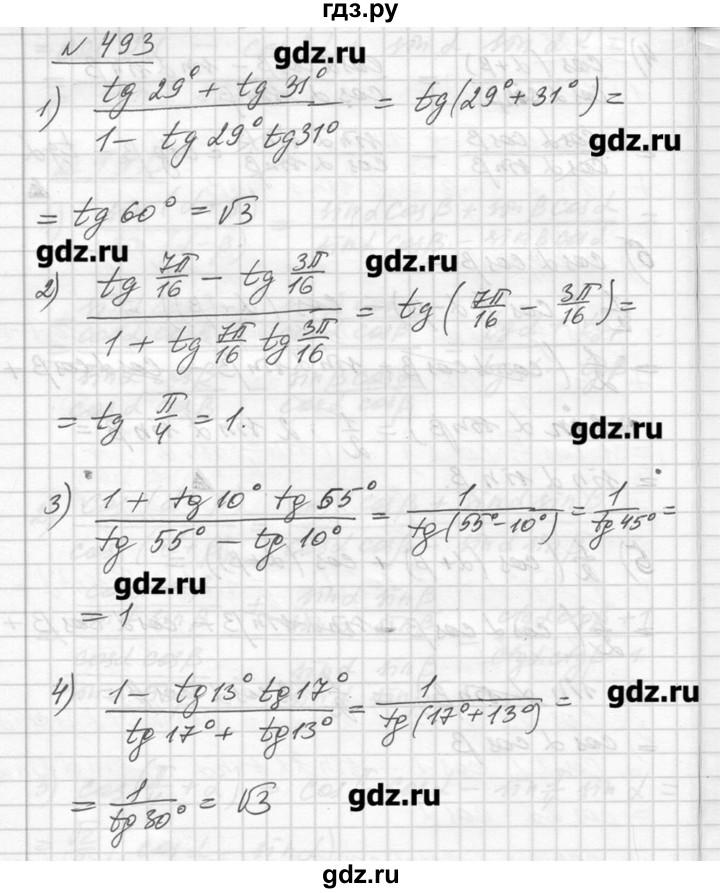 гдз.ру
№ 493
gdz.ru
1) (tg 29° + tg 31°)/(1 - tg 29° tg 31°) = tg(29° + 31°) =
gdz.ru
= tg 60° = √3
gdz.ru
gdz.ru
2) (tg 7π/16 - tg 3π/16)/(1 + tg 7π/16 tg 3π/16) = tg(7π/16 - 3π/16) =
= tg π/4 = 1.
gdz.ru
3) (1 + tg 10° tg 55°)/(tg 55° - tg 10°) = 1/(tg(55° - 10°)) = 1/(tg 45°) =
gdz.ru
= 1
4) (1 - tg 13° tg 17°)/(tg 17° + tg 13°) = 1/(tg(17° + 13°)) =
gdz.ru
= 1/(tg 30°) = √3
gdz.ru
гдз.ру